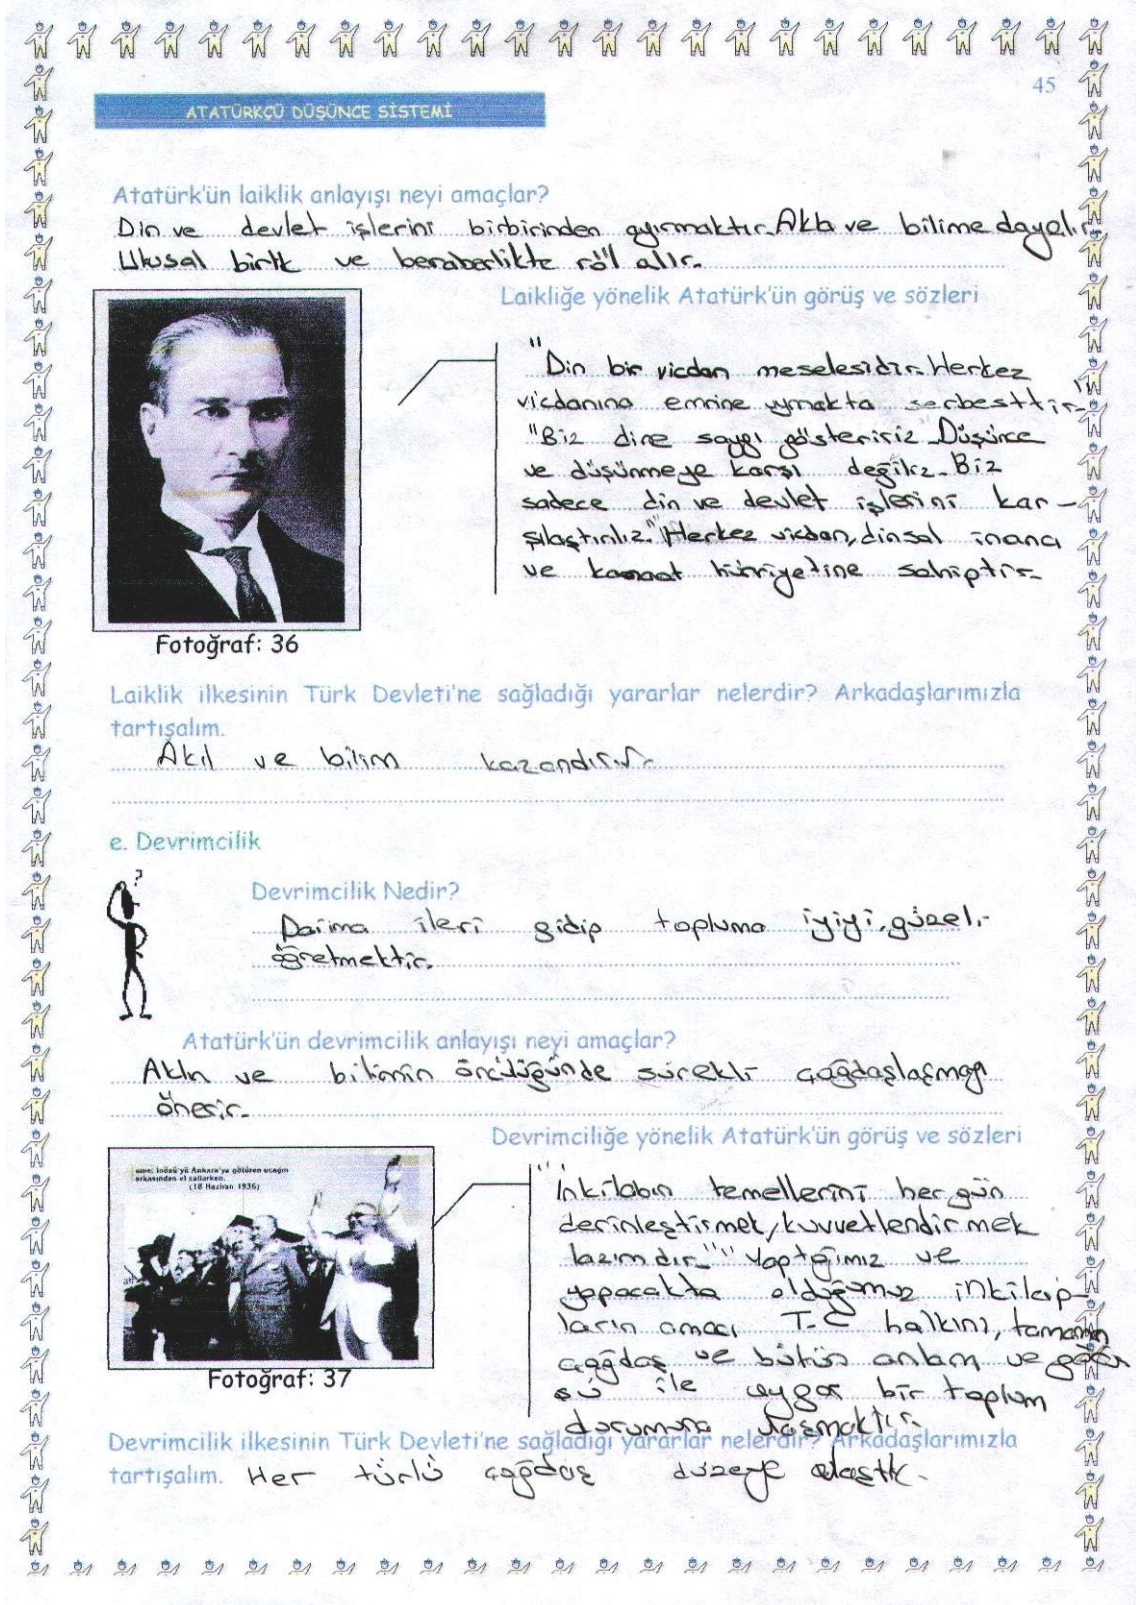 45
ATATÜRKÇÜ DÜŞÜNCE SİSTEMİ
Atatürk'ün laiklik anlayışı neyi amaçlar?
Din ve devlet işlerini birbirinden ayırmaktır. Akla ve bilime dayalır.
Ulusal birlik ve beraberlikte röl alır.
Laikliğe yönelik Atatürk'ün görüş ve sözleri
"Din bir vicdan meselesidir. Herkez
vicdanına emrine uymakta serbesttir."
"Biz dine saygı gösteririz. Düşünce
ve düşünmeye karşı değiliz. Biz
sadece din ve devlet işlerini kar-
şılaştırılız." Herkez vicdan, dinsal inancı
ve kanaat hürriyetine sahiptir.
Fotoğraf: 36
Laiklik ilkesinin Türk Devleti'ne sağladığı yararlar nelerdir? Arkadaşlarımızla
tartışalım.
Akıl ve bilim kazandırır.
e. Devrimcilik
?
Devrimcilik Nedir?
Daima ileri gidip topluma iyiyi, güzeli
öğretmektir.
Atatürk'ün devrimcilik anlayışı neyi amaçlar?
Aklın ve bilimin öncülüğünde sürekli çağdaşlaşmayı
önerir.
Devrimciliğe yönelik Atatürk'ün görüş ve sözleri
İnönü'yü Ankara'ya götüren uçağın
arkasından el sallarken.
(18 Haziran 1936)
"İnkılabın temellerini her gün
derinleştirmek, kuvvetlendirmek
lazımdır." "Yaptığımız ve
yapacakta olduğumuz inkilap-
ların amacı T.C halkını, tamamen
çağdaş ve bütün anlam ve
ile uygar bir toplum
durumuna ulaşmaktır.
Fotoğraf: 37
Devrimcilik ilkesinin Türk Devleti'ne sağladığı yararlar nelerdir? Arkadaşlarımızla
tartışalım. Her türlü çağdaş düzeye ulaştık.